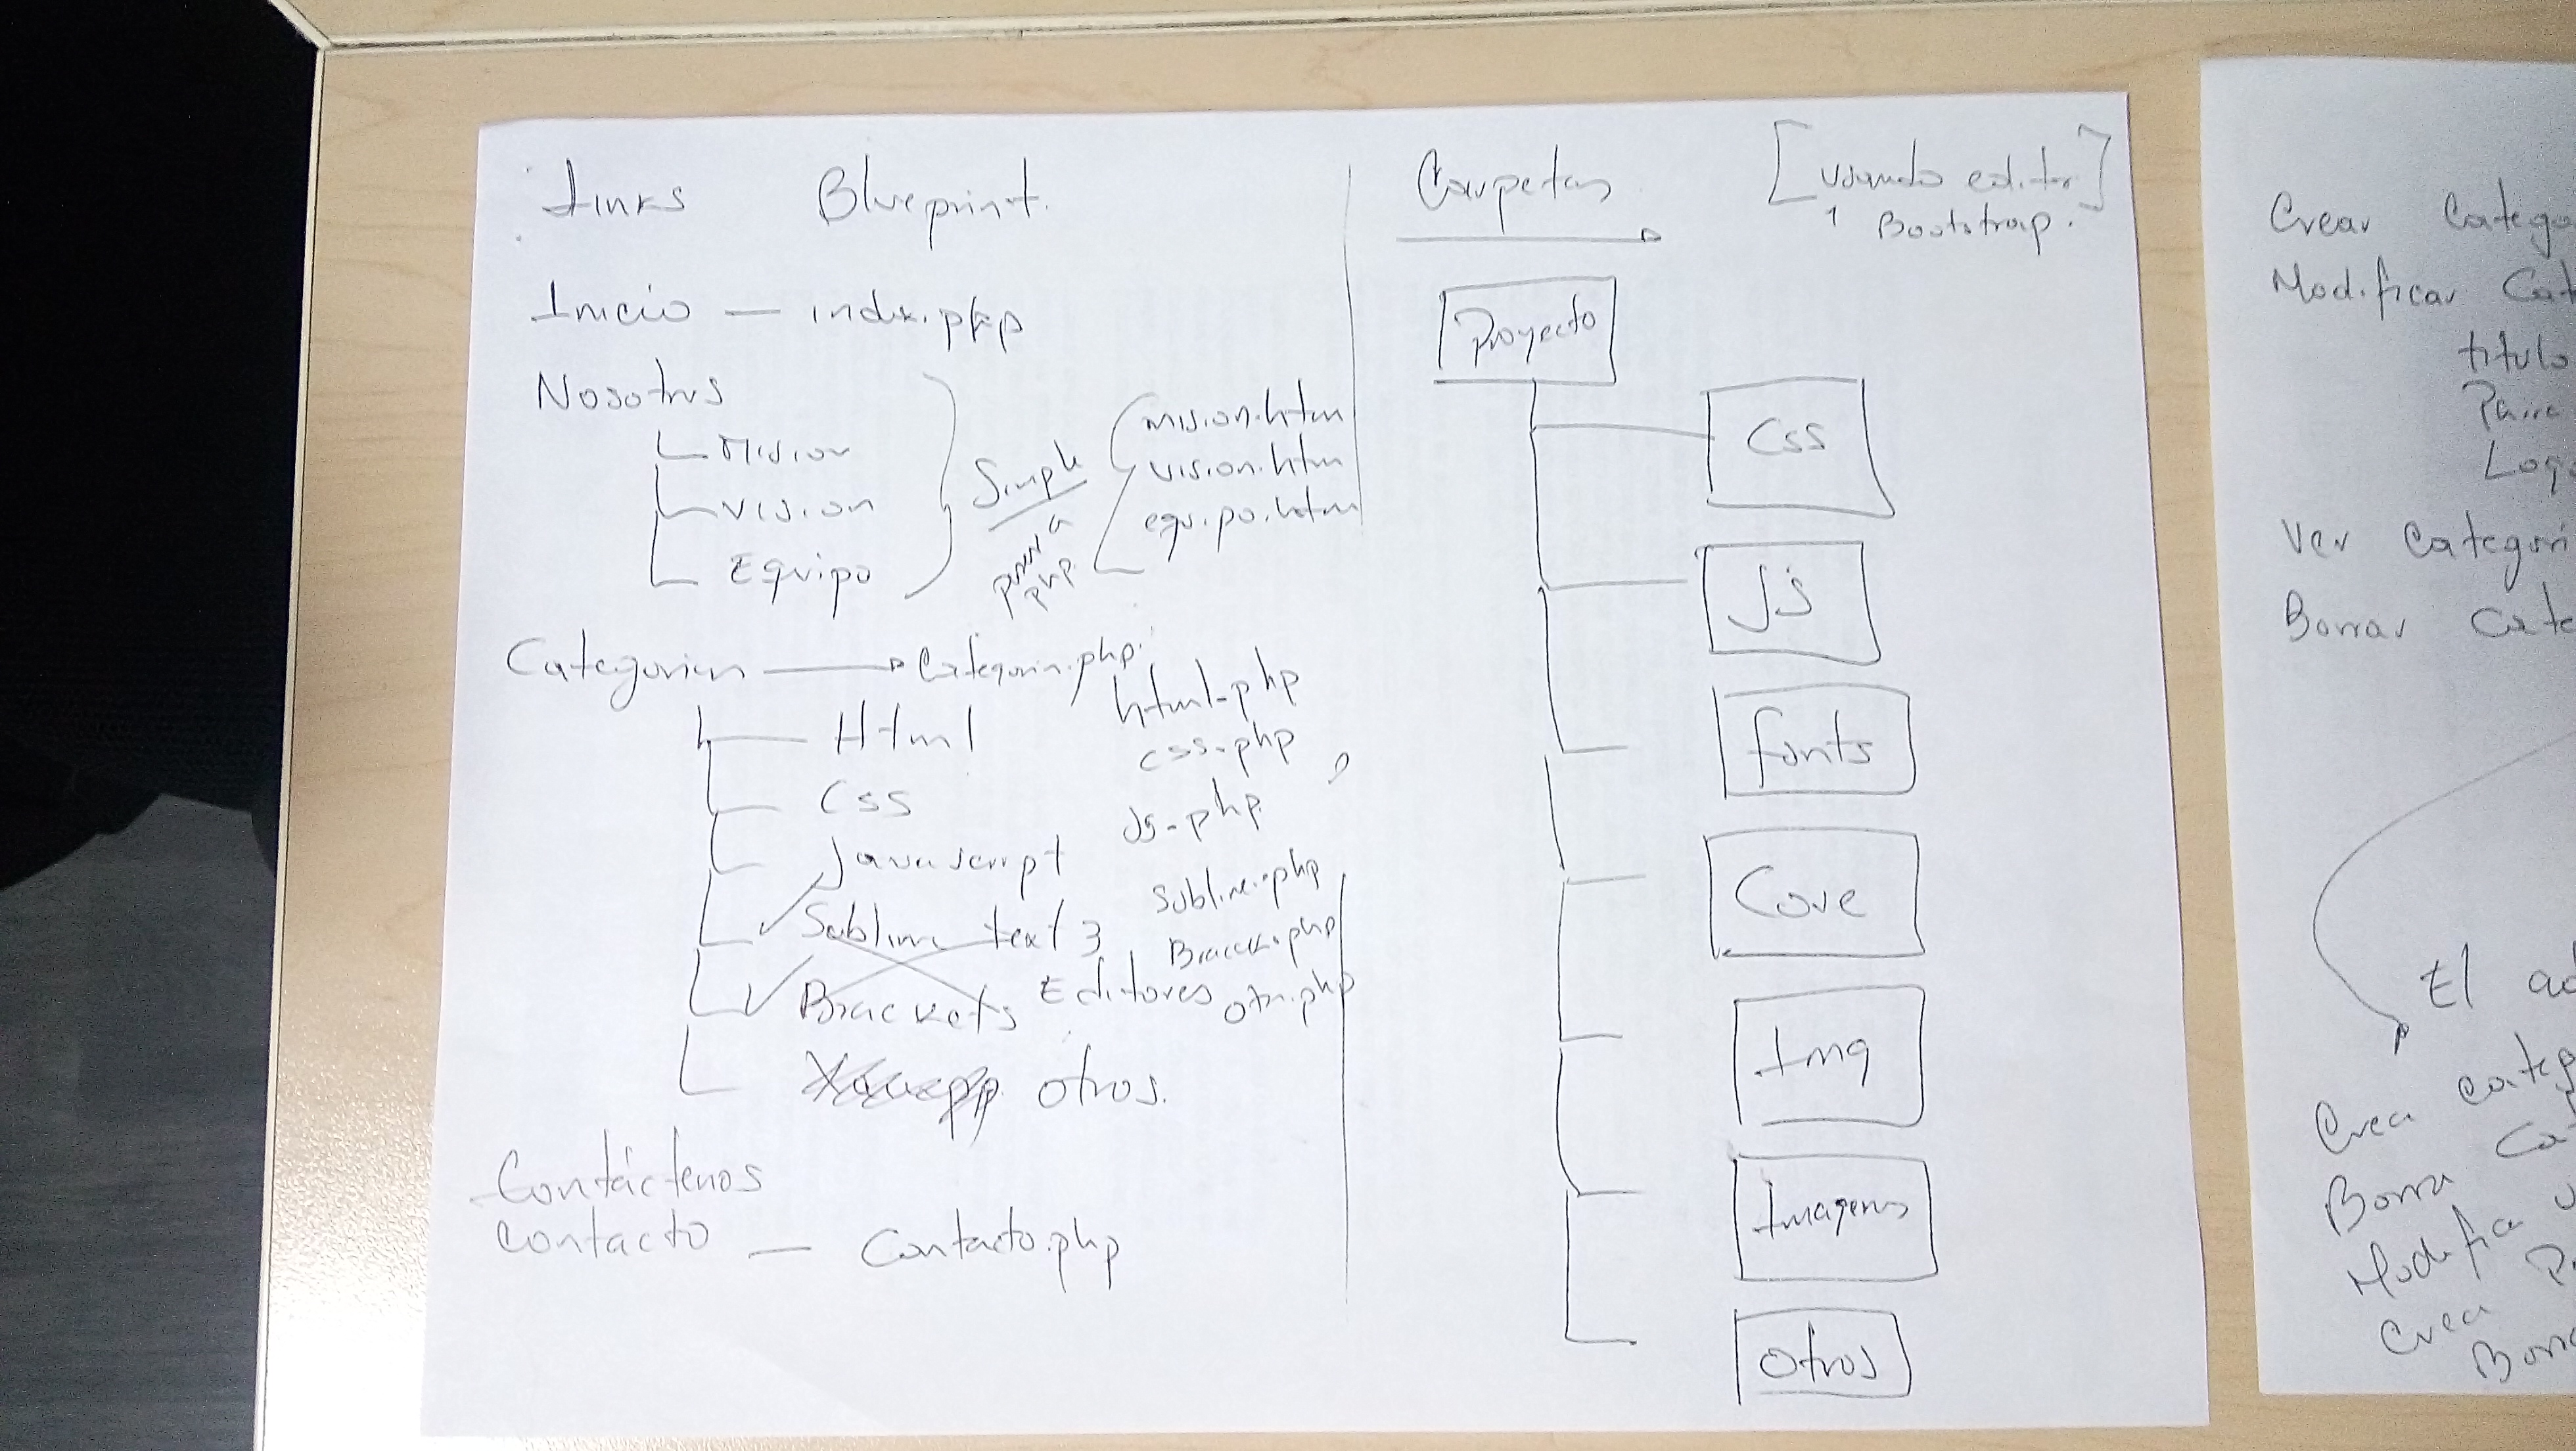 Links Blueprint.
Inicio — index.php
Nosotros
Mision
Vision
Equipo
Simple
php
mision.htm
vision.htm
equipo.htm
Categorias — Categorias.php
Html html-php
CSS css-php
Javascript js-php
Sublime text 3 Sublime.php
Brackets Editores Brack.php
otros. otr.php
Contáctenos
Contacto — Contacto.php
Carpetas
[usando editor
y Bootstrap.]
Proyecto
Css
JS
Fonts
Core
Img
Imagenes
Otros
Crear Catego
Modificar Cat
titulo
Logo
Ver Categori
Borrar Cate
El ad
Crea categ
Borra Ca
Modifica
Crea
Borra